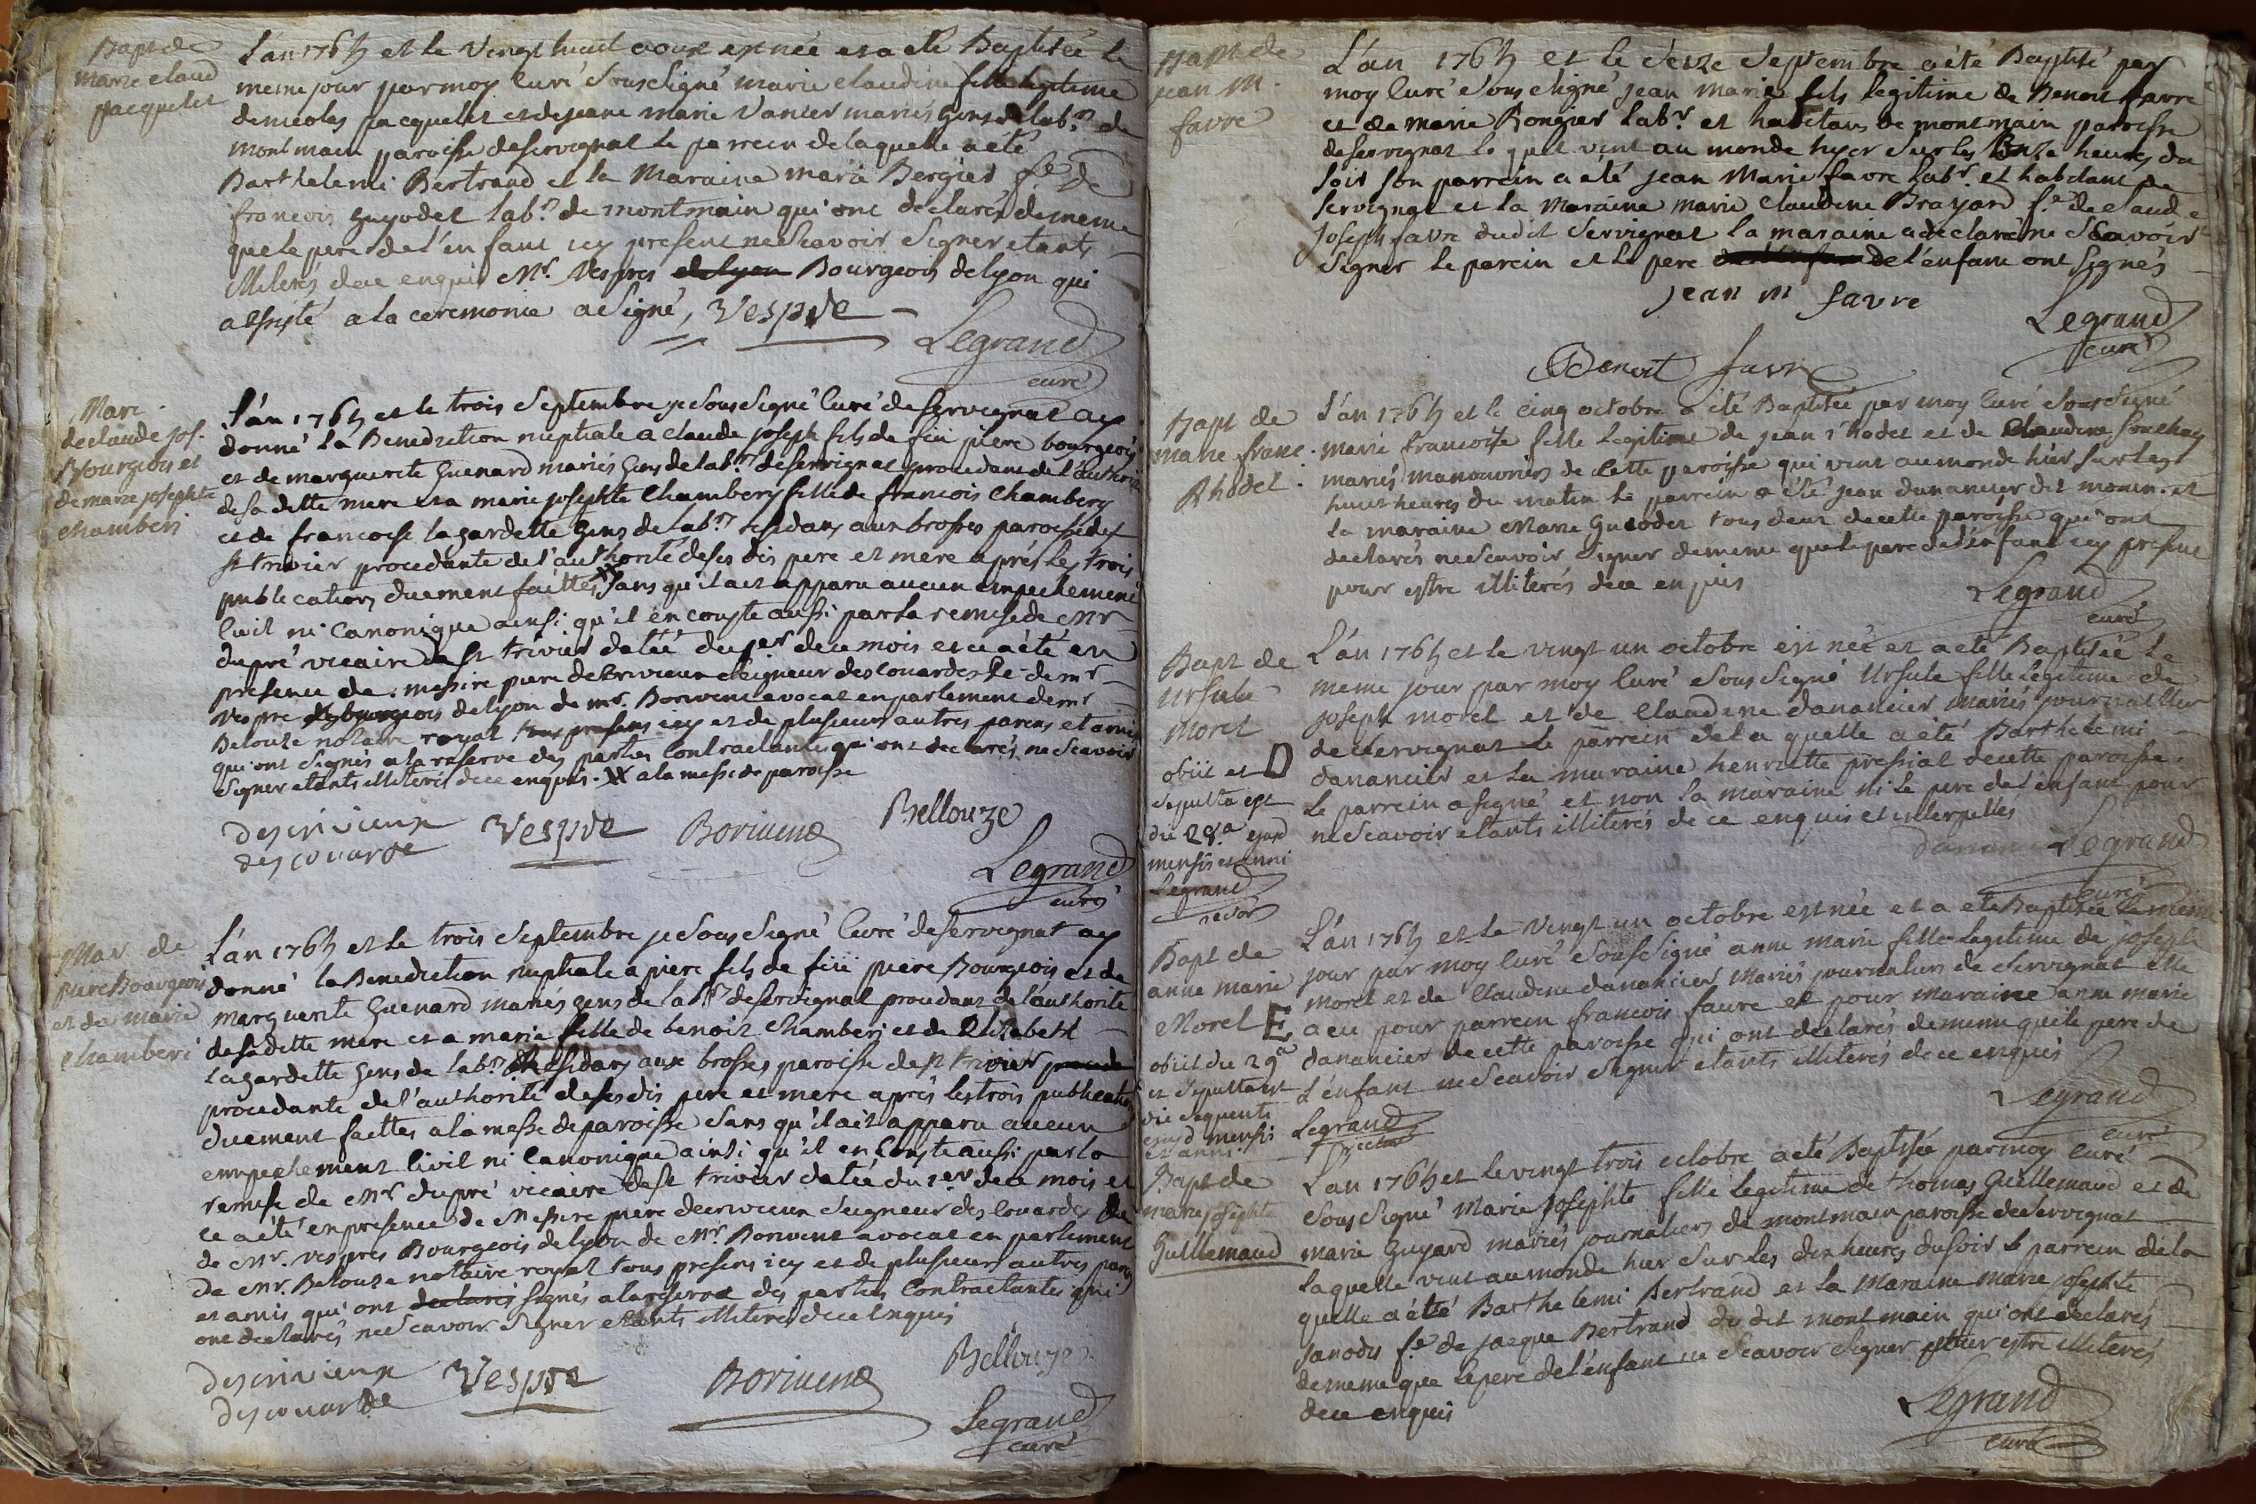 Bapt de
marie claud
jacquelet
L'an 1764 et le vingt huit aoust est née et a eté Baptisée le
meme jour par moy Curé Soussigné marie claudine fille legitime
de nicolas jacquelet et de jeane marie Vanier mariés gens de lab.r de
montmain paroisse de servignat le parrein de laquelle a été
Barthelemi Bertrand et la Maraine marie Bergier f.e de
francois guyodet lab.r de montmain qui ont declarés de meme
que le pere de l'enfant icy present ne scavoir signer etants
illiterés de ce enquis Mr. Vespres de lyon Bourgeois de lyon qui
a assisté a la ceremonie a Signé, Vespre
Legrand
curé
Mari.
de claude jos.
Bourgeois et
de marie josephte
chamberi
L'an 1764 et le trois Septembre je Sous Signé Curé de servignat ay
donné la Benediction nuptiale a claude joseph fils de feu piere bourgeois
et de marguerite Guenard mariés gens de lab.r de servignat procedant de l'authorité
de sa dette mere et a marie josephte Chambery fille de francois Chambery
et de francoise lagardette gens de lab.r residans aux brosses paroisse de
st trivier procedante de l'authorité de ses dis pere et mere aprés les trois
publications duement faittes X sans qu'il ait apparu aucun empechement
Civil ni Canonique ainsi qu'il en conste aussi par la remise de Mr
dupré vicaire de st trivier datée du 1er de ce mois et ce a été en
presence de messire piere decrivieux Seigneur des couardes de mr
Vespre bourgeois de lyon de mr. Borivent avocat en parlement de mr
Belouze notaire royal tous presens icy et de plusieurs autres parens et amis
qui ont signés a la reserve des parties contractantes qui ont declarés ne scavoir
signer etants illiterés de ce enquis. X a la messe de paroisse
descrivieux
descouarde
Vespre
Borivent
Bellouze
Legrand
curé
Mar de
piere Bourgeois
et de marie
chamberi
L'an 1764 et le trois Septembre je Sous Signé Curé de servignat ay
donné la Benediction nuptiale a piere fils de feu piere Bourgeois et de
marguerite Guenard mariés gens de lab.r de servignat procedant de l'authorité
de sa dette mere et a marie fille de benoit Chamberi et de Elizabeth
Lagardette gens de lab.r residans aux brosses paroisse de st trivier procede
procedante de l'authorité de ses dis pere et mere aprés les trois publications
duement faittes a la messe de paroisse Sans qu'il ait apparu aucun
empechement Civil ni Canonique ainsi qu'il en Conste aussi par la
remise de Mr dupré vicaire de st trivier datée du 1er de ce mois et
ce a été en presence de Messire piere decrivieux Seigneur des Couardes
de Mr. Vespres Bourgeois de lyon de Mr. Borivent avocat en parlement
de Mr. Belouze notaire royal tous presens icy et de plusieurs autres parens
et amis qui ont declarés signés a la reserve des parties Contractantes qui
ont declarés ne Scavoir Signer etants illiterés de ce enquis
descrivieux
descouarde
Vespre
Borivent
Bellouze
Legrand
curé
Bapt de
jean M.
favre
L'an 1764 et le seize Septembre a été Baptisé par
moy Curé Sous Signé jean marie fils legitime de Benoit favre
et de marie Rongier lab.r et habitans de montmain paroisse
de servignat le quel vint au monde hyer sur les onze heures du
soir son parrein a été jean Marie favre lab.r et habitant de
servignat et la maraine marie claudine Brayard f.e de claude
joseph favre dudit servignat la maraine a declaré ne Scavoir
signer le parein et le pere de l'enfant ont signés
jean m favre
Legrand
curé
Benoit favre
Bapt de
marie franc.
Rhodet.
L'an 1764 et le cinq octobre a été Baptisée par moy Curé Sous Signé
marie francoise fille legitime de jean rhodet et de Claudine souchay
mariés manouvriers de cette paroisse qui vint au monde hier sur les
huit heures du matin le parrein a été jean danancier dit monin et
la maraine Marie Guiodet tous deux de cette paroisse qui ont
declarés ne scavoir signer de meme que le pere de l'enfant icy present
pour estre illiterés de ce enquis
Legrand
curé
Bapt de
Ursule
Morel
obiit et D
sepulta est
die 28.a ejusd
mensis et anni
Legrand
rector
L'an 1764 et le vingt un octobre est née et a eté Baptisée le
meme jour par moy Curé Sous Signé Ursule fille legitime de
joseph morel et de Claudine dananciér mariés journallier
de servignat le parrein de la quelle a été Barthelemi
dananciér et la maraine henriette pressiat de cette paroisse.
le parrein a signé et non la maraine ni le pere de l'enfant pour
ne Scavoir etants illiterés de ce enquis et interpellés
Legrand
curé
Bapt de
anne marie
Morel E
obiit die 29.a
et sepulta est
die sequenti
ejusd mensis
et anni.
Legrand
rector
L'an 1764 et le vingt un octobre est née et a eté Baptisée le meme
jour par moy Curé Sous Signé anne marie fille legitime de joseph
morel et de Claudine danancier Mariés journaliers de servignat elle
a eu pour parrein francois faure et pour maraine anne marie
danancier de cette paroisse qui ont declarés de meme que le pere de
l'enfant ne Scavoir Signer etants illiterés de ce enquis
Legrand
curé
Bapt de
marie josephte
Guillemaud
L'an 1764 et le vingt trois octobre a été Baptisée par moy Curé
Sous Signé Marie josephte fille legitime de thomas Guillemaud et de
marie Guyard mariés journaliers de montmain paroisse de Servignat
laquelle vint au monde hier sur les dix heures du soir le parrein de la
quelle a été Barthelemi Bertrand et la Maraine Marie josephte
janodis f.e de jacque Bertrand du dit montmain qui ont declarés
de meme que le pere de l'enfant ne Scavoir Signer pour estre illiterés
de ce enquis
Legrand
curé